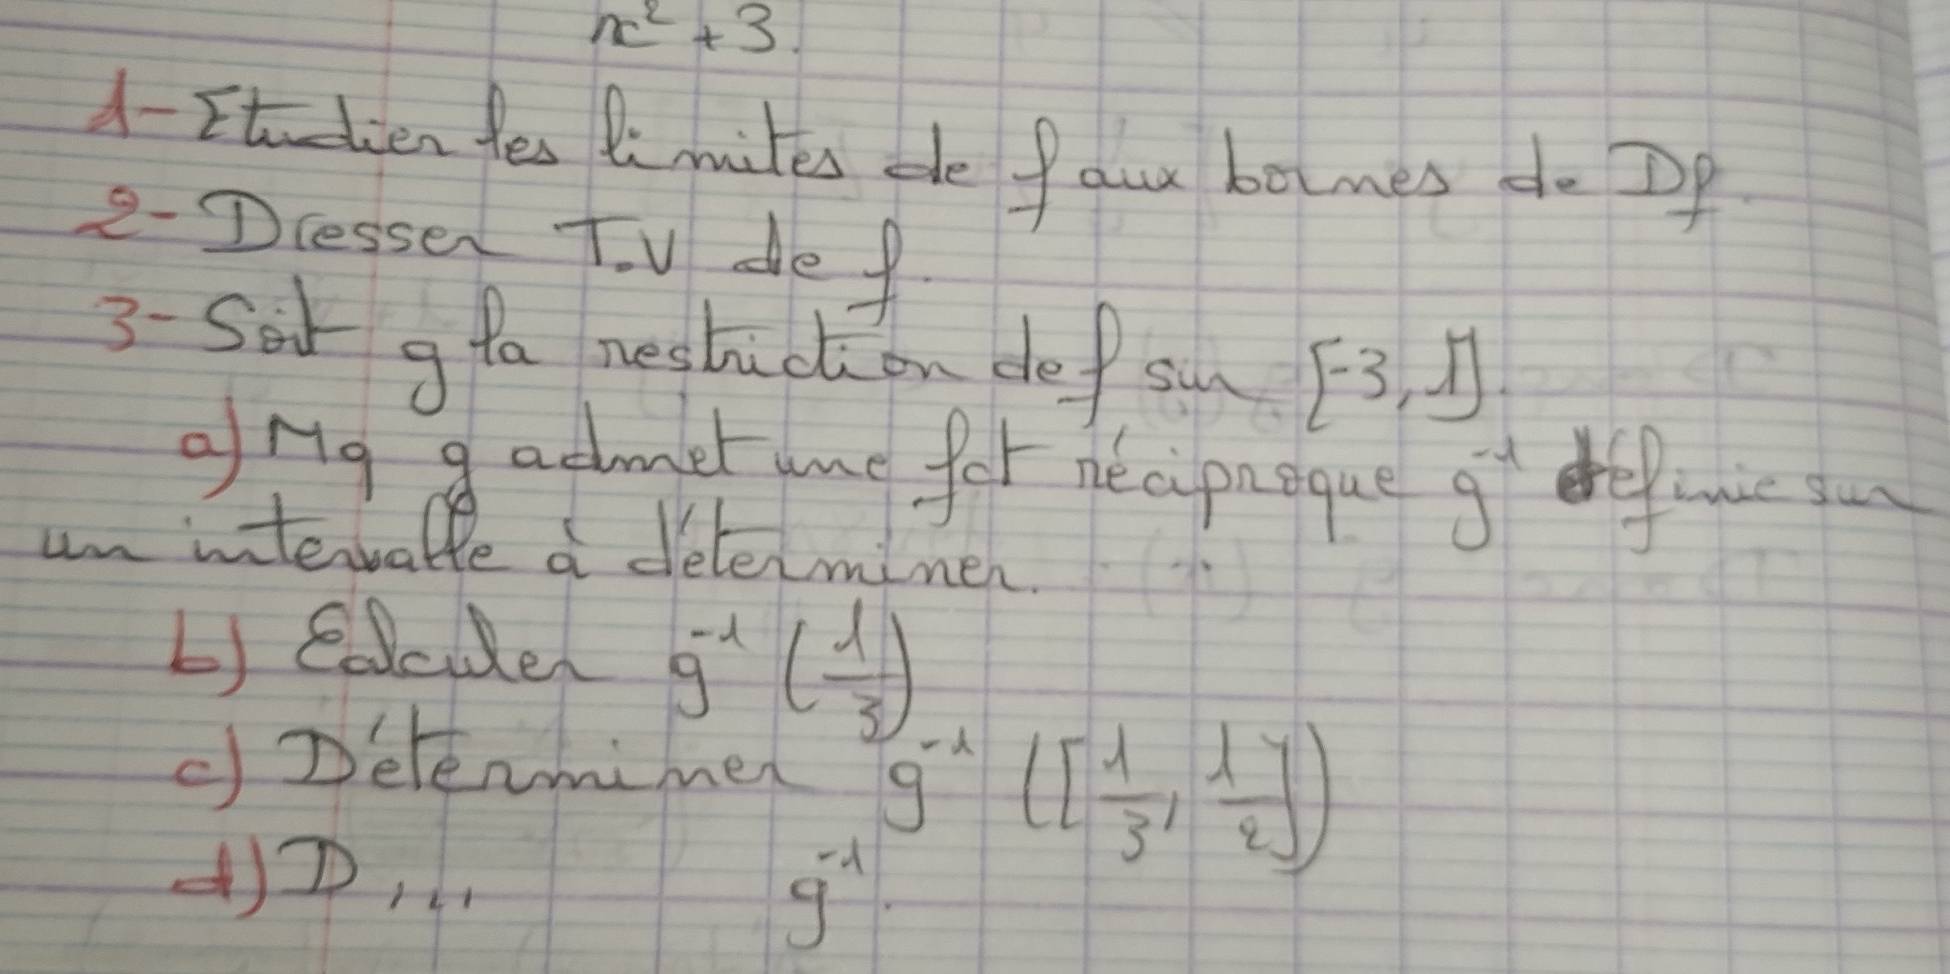 x² + 3.
1- Etudier les limites de f aux bornes de Df.
2- Dresser T.V de f.
3- Soit g la restriction de f sur [-3, 1].
a) Mq g admet une fct réciproque g⁻¹ définie sur
un intervalle à déterminer.
b) Calculer g⁻¹ (1/3)
c) Déterminer g⁻¹ ([1/3, 1/2])
d) D, ... g⁻¹.